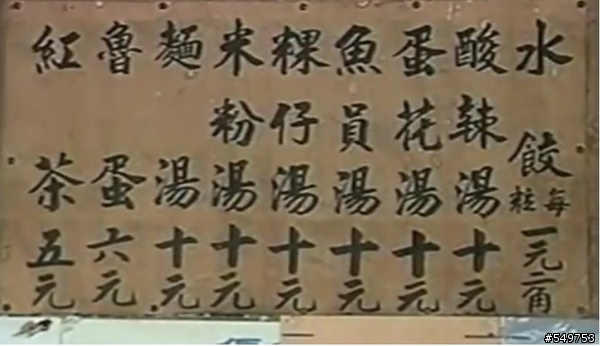 水餃每粒一元二角
酸辣湯十元
蛋花湯十元
魚員湯十元
粿仔湯十元
米粉湯十元
麵湯十元
魯蛋六元
紅茶五元
#549753